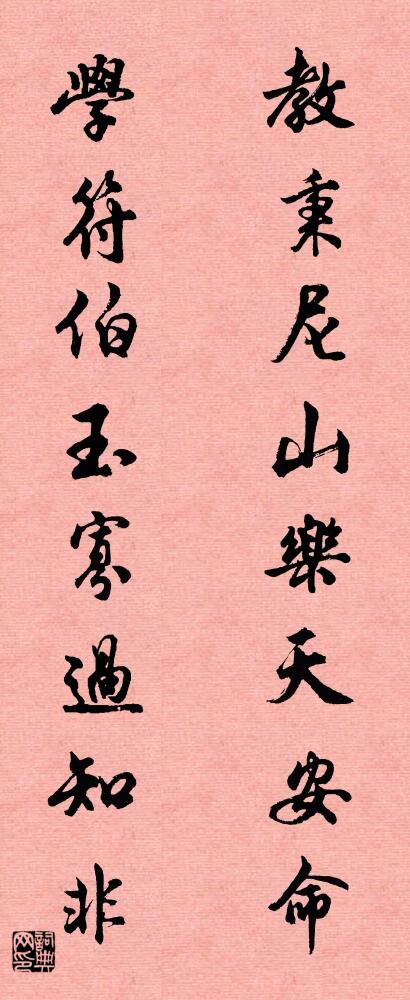 教秉尼山樂天安命
學符伯玉寡過知非
詞典网印